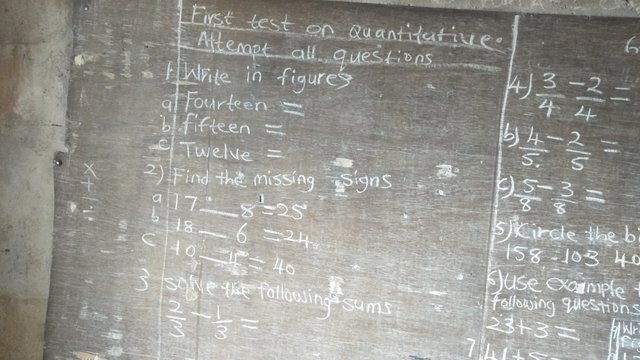 First test on quantitative.
Attempt all questions
1. Write in figures
a) Fourteen =
b fifteen =
c Twelve =
2) Find the missing signs
x
+
-
÷
a 17 __ 8 = 25
b 18 __ 6 = 24
c 10 __ 4 = 40
3 solve the following sums
2/3 - 1/3 =
4) 3/4 - 2/4 =
b) 4/5 - 2/5 =
c) 5/8 - 3/8 =
5) Circle the bi
158 - 103 40
6) Use example
following questions
23+3 =